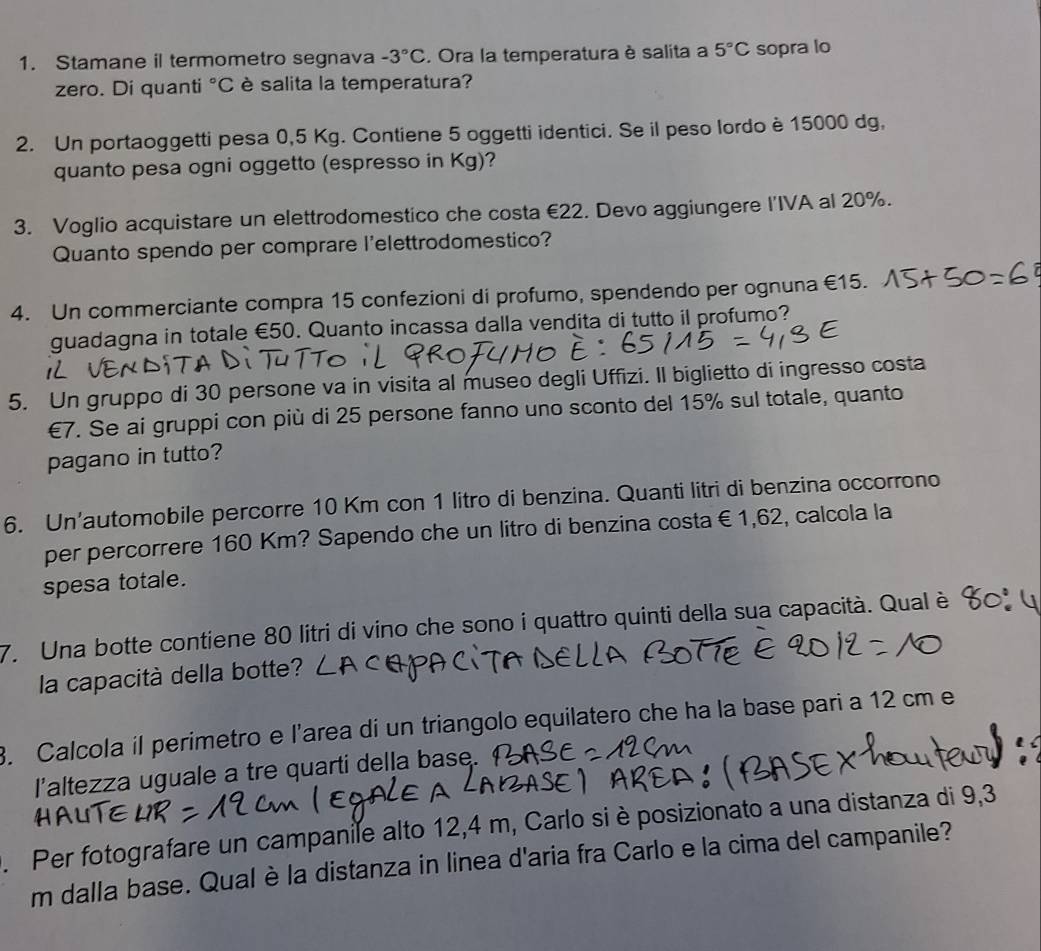 1. Stamane il termometro segnava -3°C. Ora la temperatura è salita a 5°C sopra lo
zero. Di quanti °C è salita la temperatura?
2. Un portaoggetti pesa 0,5 Kg. Contiene 5 oggetti identici. Se il peso lordo è 15000 dg,
quanto pesa ogni oggetto (espresso in Kg)?
3. Voglio acquistare un elettrodomestico che costa €22. Devo aggiungere l'IVA al 20%.
Quanto spendo per comprare l'elettrodomestico?
4. Un commerciante compra 15 confezioni di profumo, spendendo per ognuna €15. 15+50=6
guadagna in totale €50. Quanto incassa dalla vendita di tutto il profumo?
iL VENDiTA Di TUTTO iL PROFUMO È: 65/15 = 4,3 E
5. Un gruppo di 30 persone va in visita al museo degli Uffizi. Il biglietto di ingresso costa
€7. Se ai gruppi con più di 25 persone fanno uno sconto del 15% sul totale, quanto
pagano in tutto?
6. Un'automobile percorre 10 Km con 1 litro di benzina. Quanti litri di benzina occorrono
per percorrere 160 Km? Sapendo che un litro di benzina costa € 1,62, calcola la
spesa totale.
7. Una botte contiene 80 litri di vino che sono i quattro quinti della sua capacità. Qual è 80:4
la capacità della botte? LA CAPACiTA DELLA BOTTE È 20/2=10
8. Calcola il perimetro e l'area di un triangolo equilatero che ha la base pari a 12 cm e
l'altezza uguale a tre quarti della base. BASE=12cm
HAUTEUR = 12 cm (EgALE A LA BASE) AREA: (BASE x hauteur) :
. Per fotografare un campanile alto 12,4 m, Carlo si è posizionato a una distanza di 9,3
m dalla base. Qual è la distanza in linea d'aria fra Carlo e la cima del campanile?